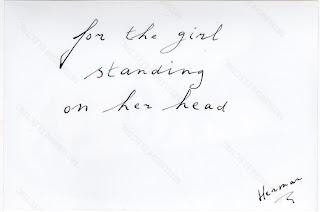 for the girl
standing
on her head
Herman